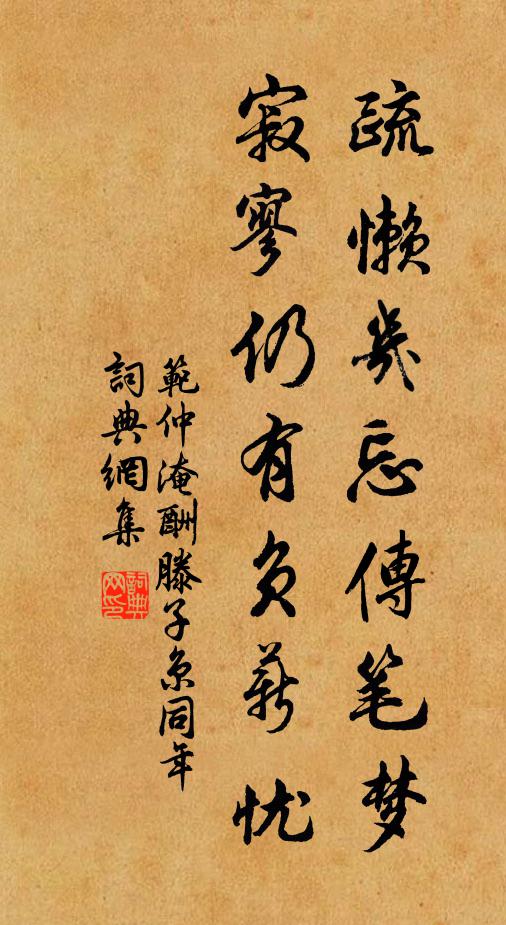 疏懒幾忘傳笔梦
寂寥仍有负薪忧
範仲淹酬滕子京同年
詞典網集
詞典网印